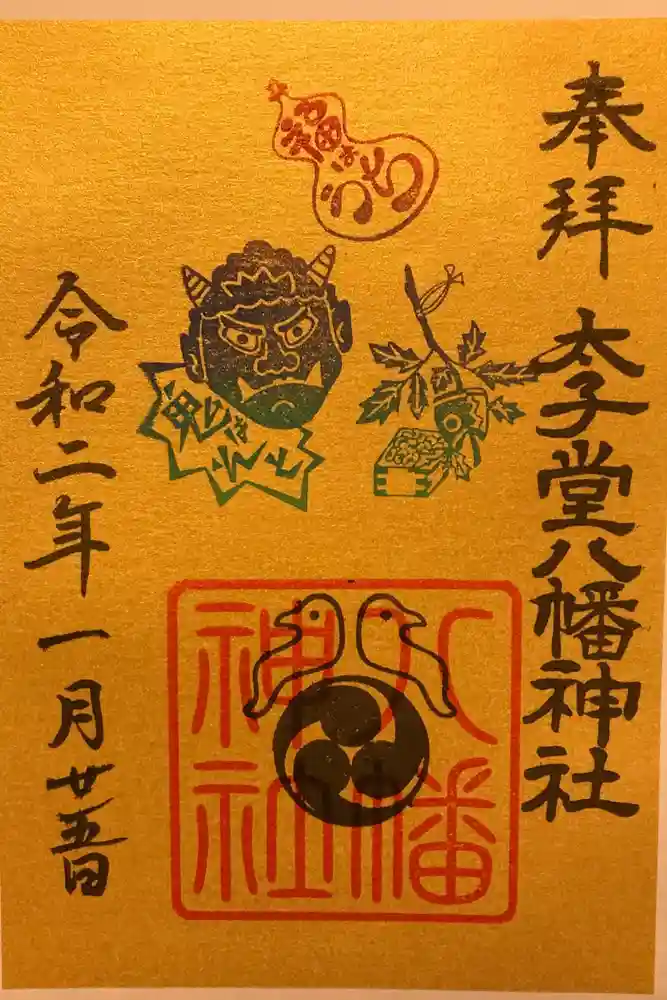 奉拝
太子堂八幡神社
福はうち
鬼はそと
八幡
神社
令和二年一月廿五日